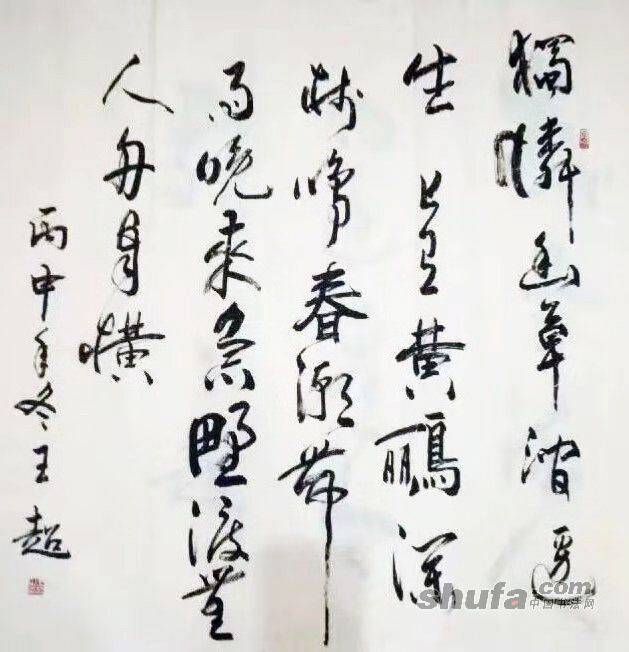 獨憐幽草澗邊
生上有黄鸝深
樹鳴春潮帶
雨晚來急野渡無
人舟自橫
丙申年冬王超
shufa.com
中国书法网